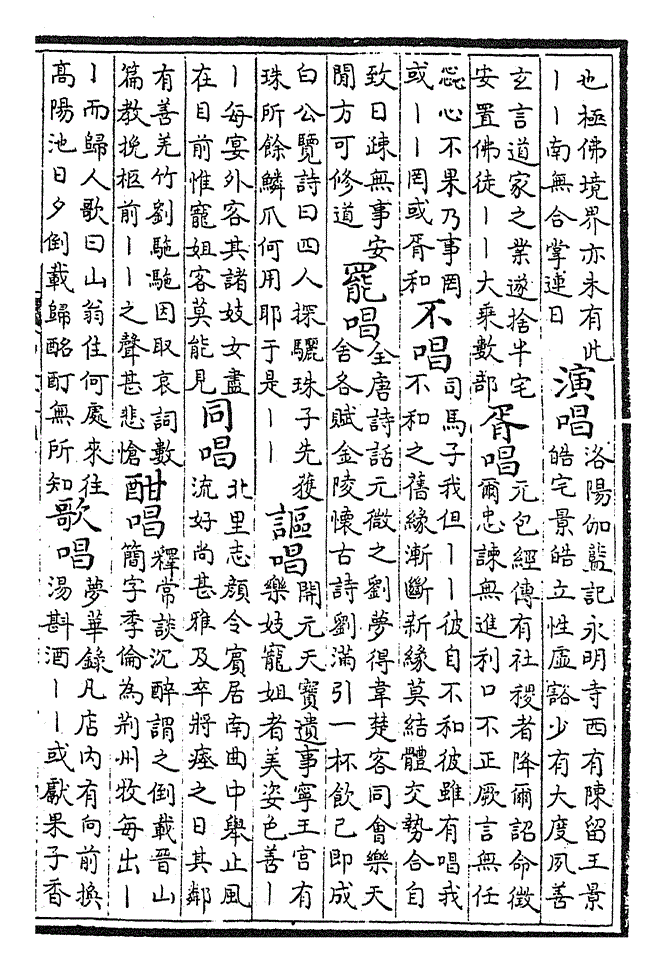 也極佛境界亦未有此
丨丨南無合掌連日
演唱
洛陽伽藍記永明寺西有陳留王景
皓宅景皓立性虛豁少有大度夙善
玄言道家之業遂捨半宅
安置佛徒丨丨大乘數部
胥唱
元包經傳有社稷者降爾詔命徵
爾忠諫無進利口不正厥言無任
惢心不果乃事罔
或丨丨罔或胥和
不唱
司馬子我但丨丨彼自不和彼雖有唱我
不和之舊緣漸斷新緣莫結體交勢合自
致日疎無事安
閒方可修道
罷唱
全唐詩話元微之劉夢得韋楚客同會樂天
舍各賦金陵懷古詩劉滿引一杯飲已即成
白公覽詩曰四人探驪珠子先獲
珠所餘鱗爪何用耶于是丨丨
謳唱
開元天寶遺事寧王宮有
樂妓寵姐者美姿色善丨
丨每宴外客其諸妓女盡
在目前惟寵姐客莫能見
同唱
北里志顏令賓居南曲中舉止風
流好尚甚雅及卒將瘞之日其鄰
有善羌竹劉駞駞因取哀詞數
篇教挽柩前丨丨之聲甚悲愴
酣唱
釋常談沉醉謂之倒載晉山
簡字季倫為荆州牧每出丨
丨而歸人歌曰山翁住何處來往
高陽池日夕倒載歸酩酊無所知
歌唱
夢華錄凡店内有向前換
湯斟酒丨丨或獻果子香